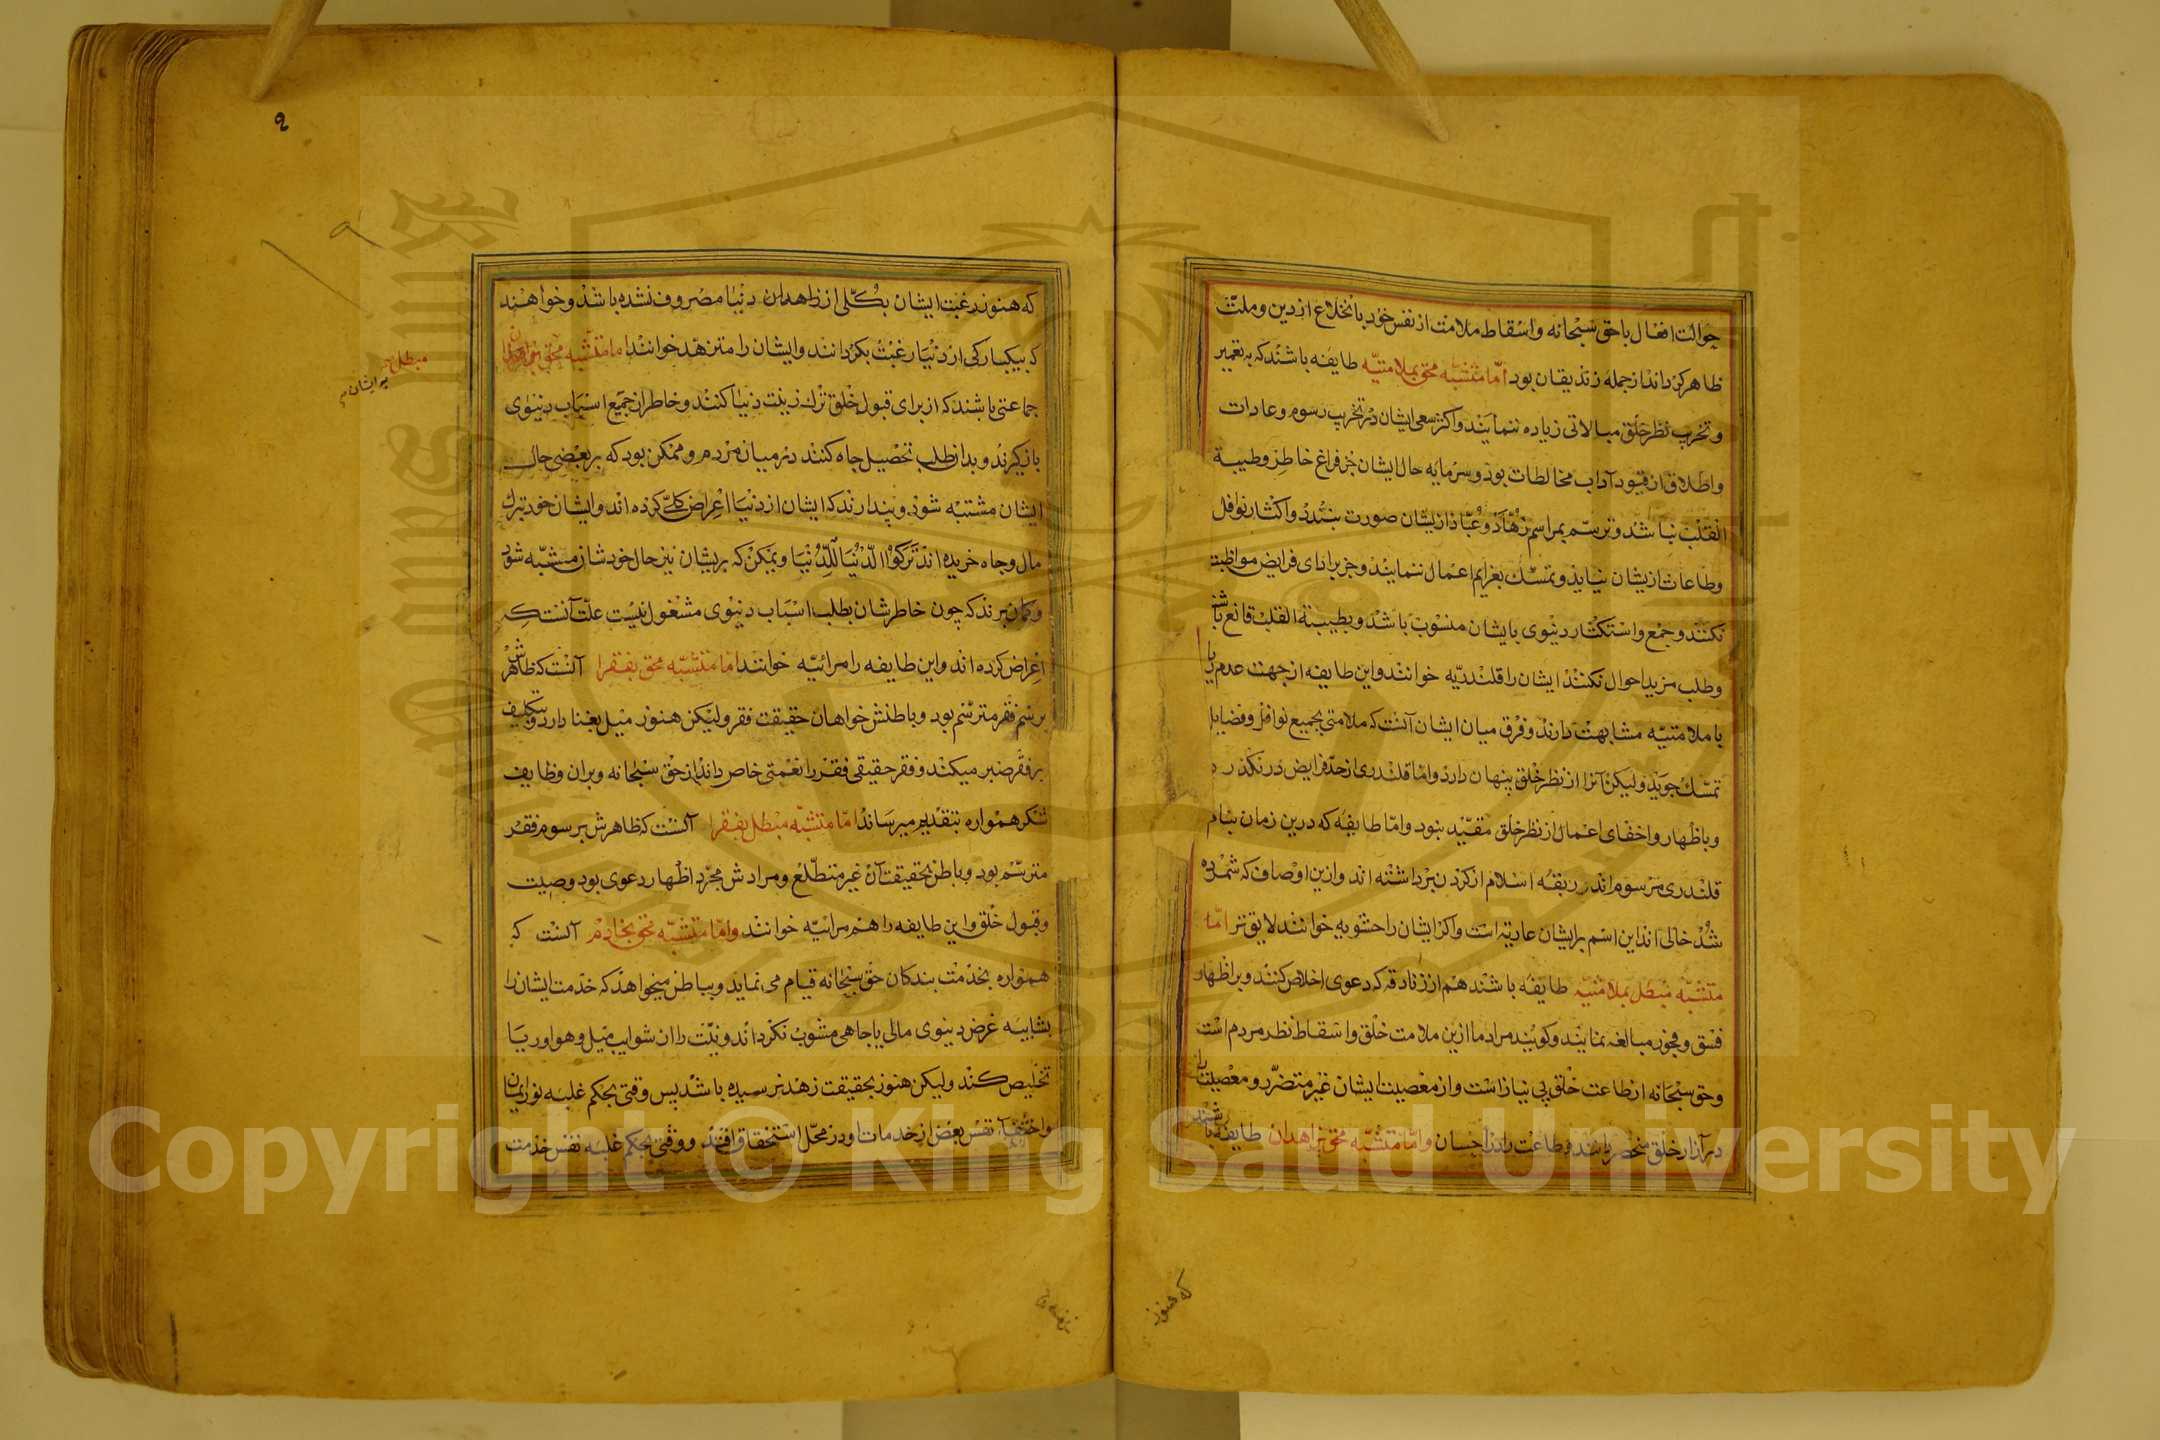 حوالت افعال با حق سبحانه و اسقاط ملامت از نفس خود با نخلاع از دین و ملت
ظاهر کرداند از جمله زندیقان بود اما متشبه محق بملامتیه طایفه باشند که به تعمیر
و تخریب نظر خلق مبالاتی زیاده ننمایند و اکثر سعی ایشان در تخریب رسوم و عادات
و اطلاق از قیود آداب مخالطات بود و سرمایه حال ایشان جز فراغ خاطر و طیبة
القلب نباشد و ترسم بمراسم زهاد و عباد از یشان صورت نبندد و اکثار نوافل
و طاعات ازیشان نیاید و تمسک بعزایم اعمال ننمایند و جز بر ادای فرایض مواظبت
نکنند و جمع و استکثار دنیوی بایشان منسوب باشد و بطیبة القلب قانع باشند
و طلب مزید احوال نکنند ایشان را قلندریه خوانند و این طایفه از جهت عدم ریا
با ملامتیه مشابهت دارند و فرق میان ایشان آنست که ملامتی بجمیع نوافل و فضایل
تمسک جوید و لیکن آنرا از نظر خلق پنهان دارد و اما قلندری از حد فرایض در نکذرد
و باظهار و اخفای اعمال از نظر خلق مقید نبود و اما طایفه که درین زمان بنام
قلندری مرسوم اند ربقه اسلام از کردن برداشته اند و ازین اوصاف که شمرده
شد خالی اند این اسم برایشان عاریة است و اکر ایشان را حشویه خوانند لایق تر اما
متشبه مبطل بملامتیه طایفه باشند هم از زنادقه که دعوی اخلاص کنند و بر اظهار
فسق و فجور مبالغه نمایند و کویند مراد ما ازین ملامت خلق و اسقاط نظر مردم است
و حق سبحانه از طاعت خلق بی نیاز است و از معصیت ایشان غیر متضرر و معصیت را
در آزار خلق منحصر باشد و طاعت را در احسان و اما متشبه محق بزاهدان طایفه باشند
که هنوز
که هنوز رغبت ایشان بکلی از زاهدان دنیا مصروف نشده باشد و خواهند
که بیکبارکی از دنیا رغبت بکردانند و ایشان را متزهد خوانند اما متشبه محق بزاهدان
مبطل
جماعتی باشند که از برای قبول خلق ترک زینت دنیا کنند و خاطر از جمیع اسباب دنیوی
بازکیرند و بدان طلب تحصیل جاه کنند در میان مردم و ممکن بود که بر بعضی حال
ایشان مشتبه شود و پندارند که ایشان از دنیا اعراض کلی کرده اند و ایشان خود بترک
مال و جاه خریده اند ترکوا الدنیا للدنیا و یمکن که بریشان نیز حال خودشان مشتبه شود
و کمان برند که چون خاطرشان بطلب اسباب دنیوی مشغول نیست علت آنست که
اعراض کرده اند و این طایفه را مرائیه خوانند اما متشبه محق بفقرا آنست که ظاهرش
برسم فقر مترسم بود و باطنش خواهان حقیقت فقر و لیکن هنوز میل بغنا دارد و بتکلیف
بر فقر صبر میکند و فقر حقیقی فقر را نعمتی خاص داند از حق سبحانه و بران وظایف
شکر همواره بتقدیم میرساند اما متشبه مبطل بفقرا آنست که ظاهرش برسوم فقر
مترسم بود و باطن بحقیقت آن غیر متطلع و مرادش مجرد اظهار دعوی بود و صیت
و قبول خلق و این طایفه را هم مرائیه خوانند و اما متشبه محق بخادم آنست که
همواره بخدمت بندکان حق سبحانه قیام می نماید و بباطن میخواهد که خدمت ایشان را
بشایبه غرض دنیوی مالی یا جاهی مشوب نکرداند و نیت را از شوایب میل و هوا و ریا
تخلیص کند و لیکن هنوز بحقیقت زهد نرسیده باشد پس وقتی بحکم غلبه نور ایمان
و اختفاء نفس بعض از خدمات او در محل استحقاق افتد و وقتی بحکم غلبه نفس خدمت
Copyright © King Saud University